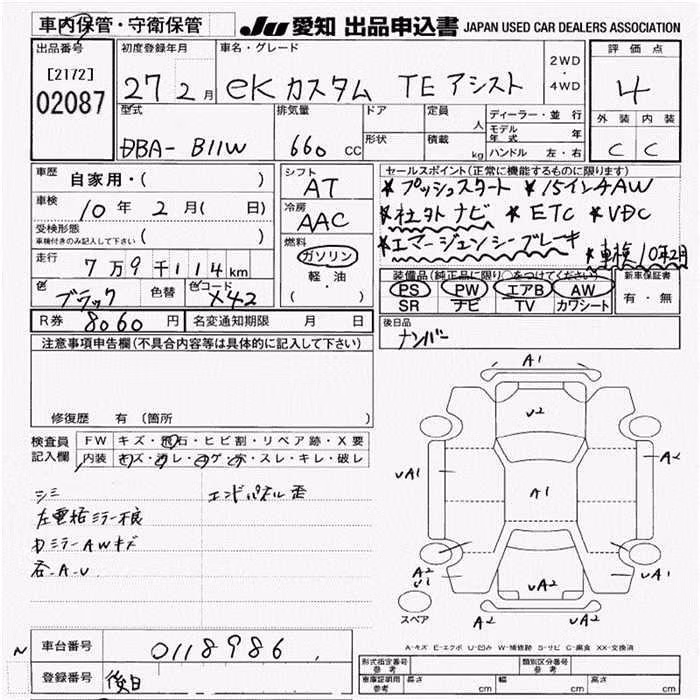 車内保管・守衛保管
JU 愛知 出品申込書 JAPAN USED CAR DEALERS ASSOCIATION
出品番号 [2172] 02087
初度登録年月 27 2月
車名・グレード eKカスタム TEアシスト
2WD・4WD
評価点 4
外装 C 内装 C
型式 DBA-B11W
排気量 660 CC
ドア
形状
定員 人
積載 kg
ディーラー・並行
モデル年式 年
ハンドル 左・右
車歴 自家用・( )
車検 10年 2月( 日)
受検形態
車検付きのみ記入して下さい ( )
走行 7万9千114km
色 ブラック 色替 色コード X42
シフト AT
冷房 AAC
燃料 ガソリン
軽・油
( )
セールスポイント(正常に機能するものに限ります)
*プッシュスタート *15インチAW
*社外ナビ *ETC *VDC
*エマージェンシーブレーキ
*車検10年2月
装備品(純正品に限り○をつけてください)
PS PW エアB AW
SR ナビ TV カワシート
新車保証書
有・無
R券 8060円 名変通知期限 月 日
後日品
ナンバー
注意事項申告欄(不具合内容等は具体的に記入して下さい)
修復歴 有 (箇所 )
検査員記入欄
FW キズ・飛石・ヒビ割・リペア跡・X要
内装 キズ・汚レ・コゲ・穴・スレ・キレ・破レ
シミ エンドパネル歪
左電格ミラー不良
カミラーAWキズ
各-A-U
A1
U2
UA1 A1 A
A2 U1 UA2 UA1
スペア A2 UA2
A-キズ E-エクボ U-凹み W-補修跡 S-サビ C-腐食 XX-交換済
車台番号 0118986
登録番号 後日
形式指定番号 参考 類別区分番号 参考
車庫証明用 参考 長さ cm 幅 cm 高さ cm